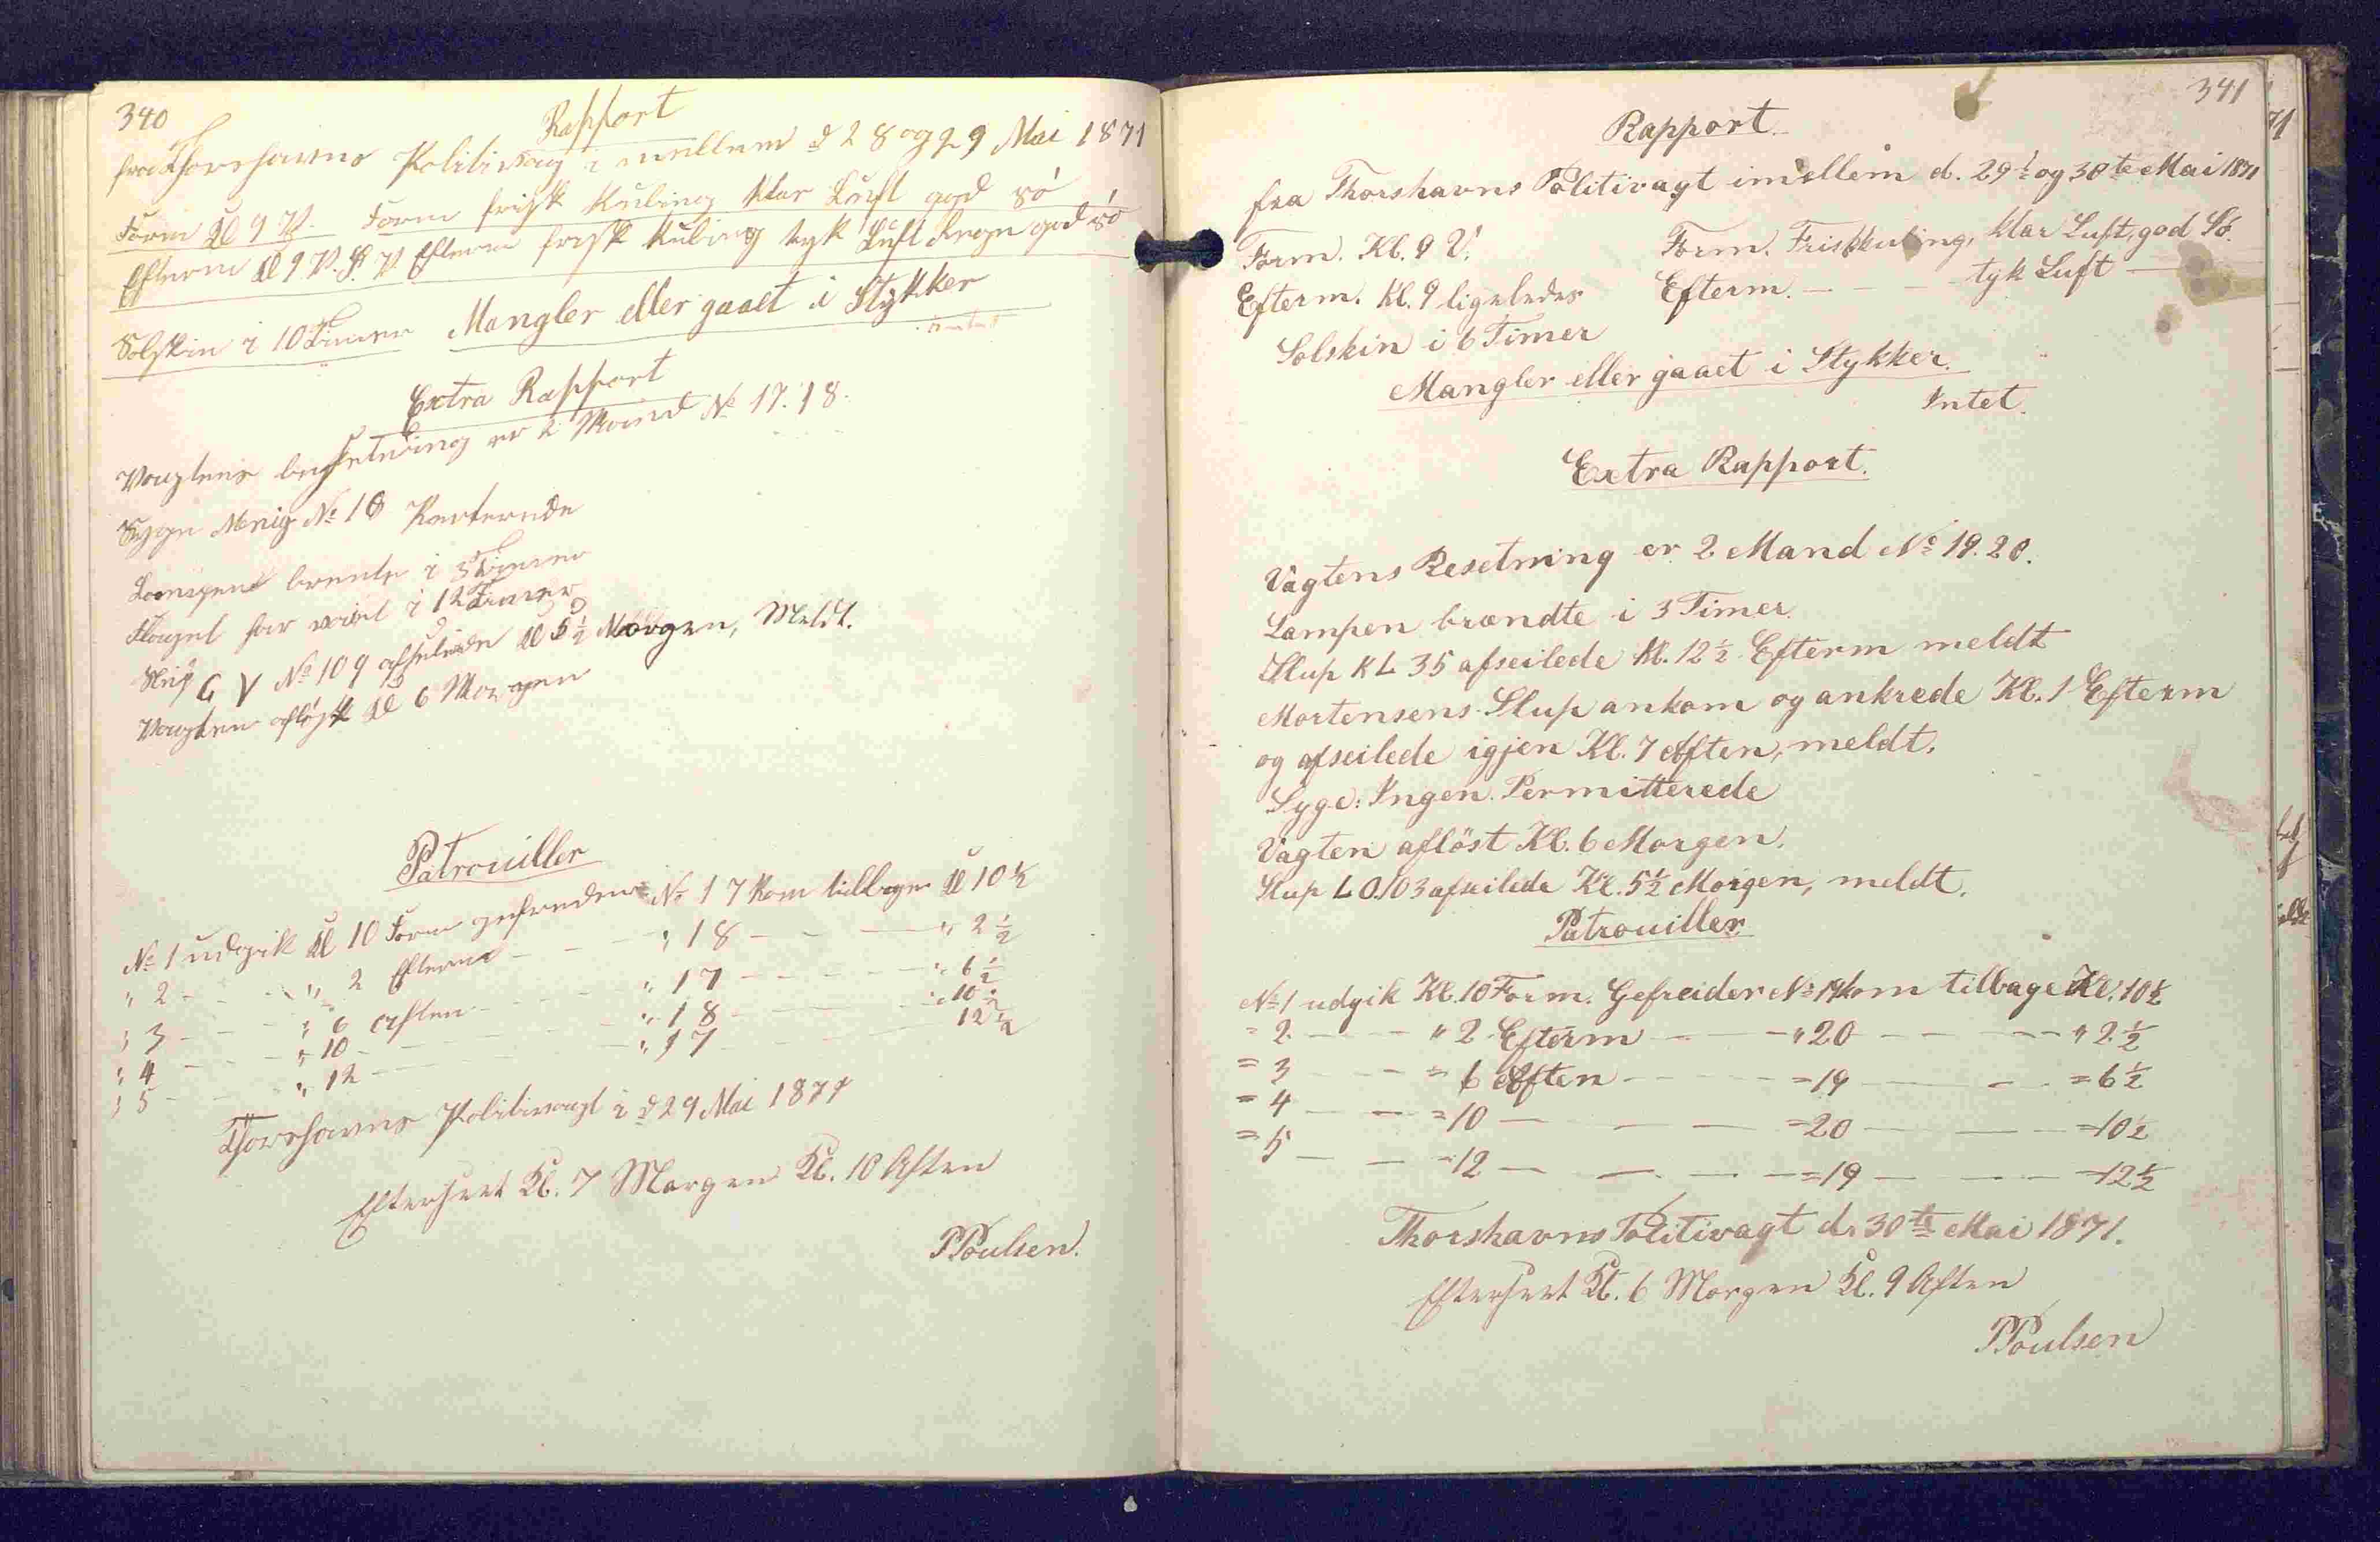 340
Rapport
fra Thorshavns Politivagt i mellem d 28 og 29 Mai 1871
Form Kl 9 V. Form frisk Kuling klar Luft god Sö
Efterm Kl 9 V. S. V. Efterm frisk Kuling tyk Luft Regn god Sö
Solskin i 10 Timer Mangler eller gaaet i Stykker
intet
Extra Rapport
Vagtens besetning er 2 Mand No 17. 18.
Syge Menig No 10 Qvarterede
Lampen brente i 3 Timer
Flaget har vaiet i 12 Timer
Slup G V No 109 afseilede Kl 5 1/2 Morgen, Meldt.
Vagten aflöst Kl 6 Morgen
Patrouiller
No 1 udgik Kl 10 Form gefreider No 17 kom tilbage Kl 10 1/2
" 2 - - " 2 Efterm - - " 18 - - - " 2 1/2
" 3 - - " 6 Aften - - " 17 - - - " 6 1/2
" 4 - - " 10 - - - " 18 - - - " 10 1/2
" 5 - - " 12 - - - " 17 - - - 12 1/2
Thorshavns Politivagt i d 29 Mai 1871
Efterseet Kl. 7 Morgen Kl. 10 Aften
PPoulsen.
341
Rapport.
fra Thorshavns Politivagt imellem d. 29 t og 30 te Mai 1871
Form. Kl. 9 V. Form. Friskkuling, klar Luft, god Sö.
Efterm. Kl. 9 ligeledes Efterm. - - - tyk Luft -
Solskin i 6 Timer
Mangler eller gaaet i Stykker.
Intet.
Extra Rapport.
Vagtens Besetning er 2 Mand No 19. 20.
Lampen brændte i 3 Timer
Slup KL 35 afseilede Kl. 12 1/2 Efterm meldt
Mortensens Slup ankom og ankrede Kl. 1 Efterm
og afseilede igjen Kl. 7 Aften, meldt.
Syge: Ingen. Permitterede
Vagten aflöst Kl. 6 Morgen.
Slup L O. 103 afseilede Kl. 5 1/2 Morgen, meldt.
Patrouiller.
No 1 udgik Kl. 10 Form. Gefreider No 19 kom tilbage Kl. 10 1/2
= 2. - - " 2 Efterm - - " 20 - - - " 2 1/2
= 3 - - = 6 Aften - - = 19 - - = 6 1/2
= 4 - - = 10 - - - = 20 - - = 10 1/2
= 5 - - = 12 - - - = 19 - - = 12 1/2
Thorshavns Politivagt d. 30 te Mai 1871.
Efterseet Kl. 6 Morgen Kl. 9 Aften
PPoulsen